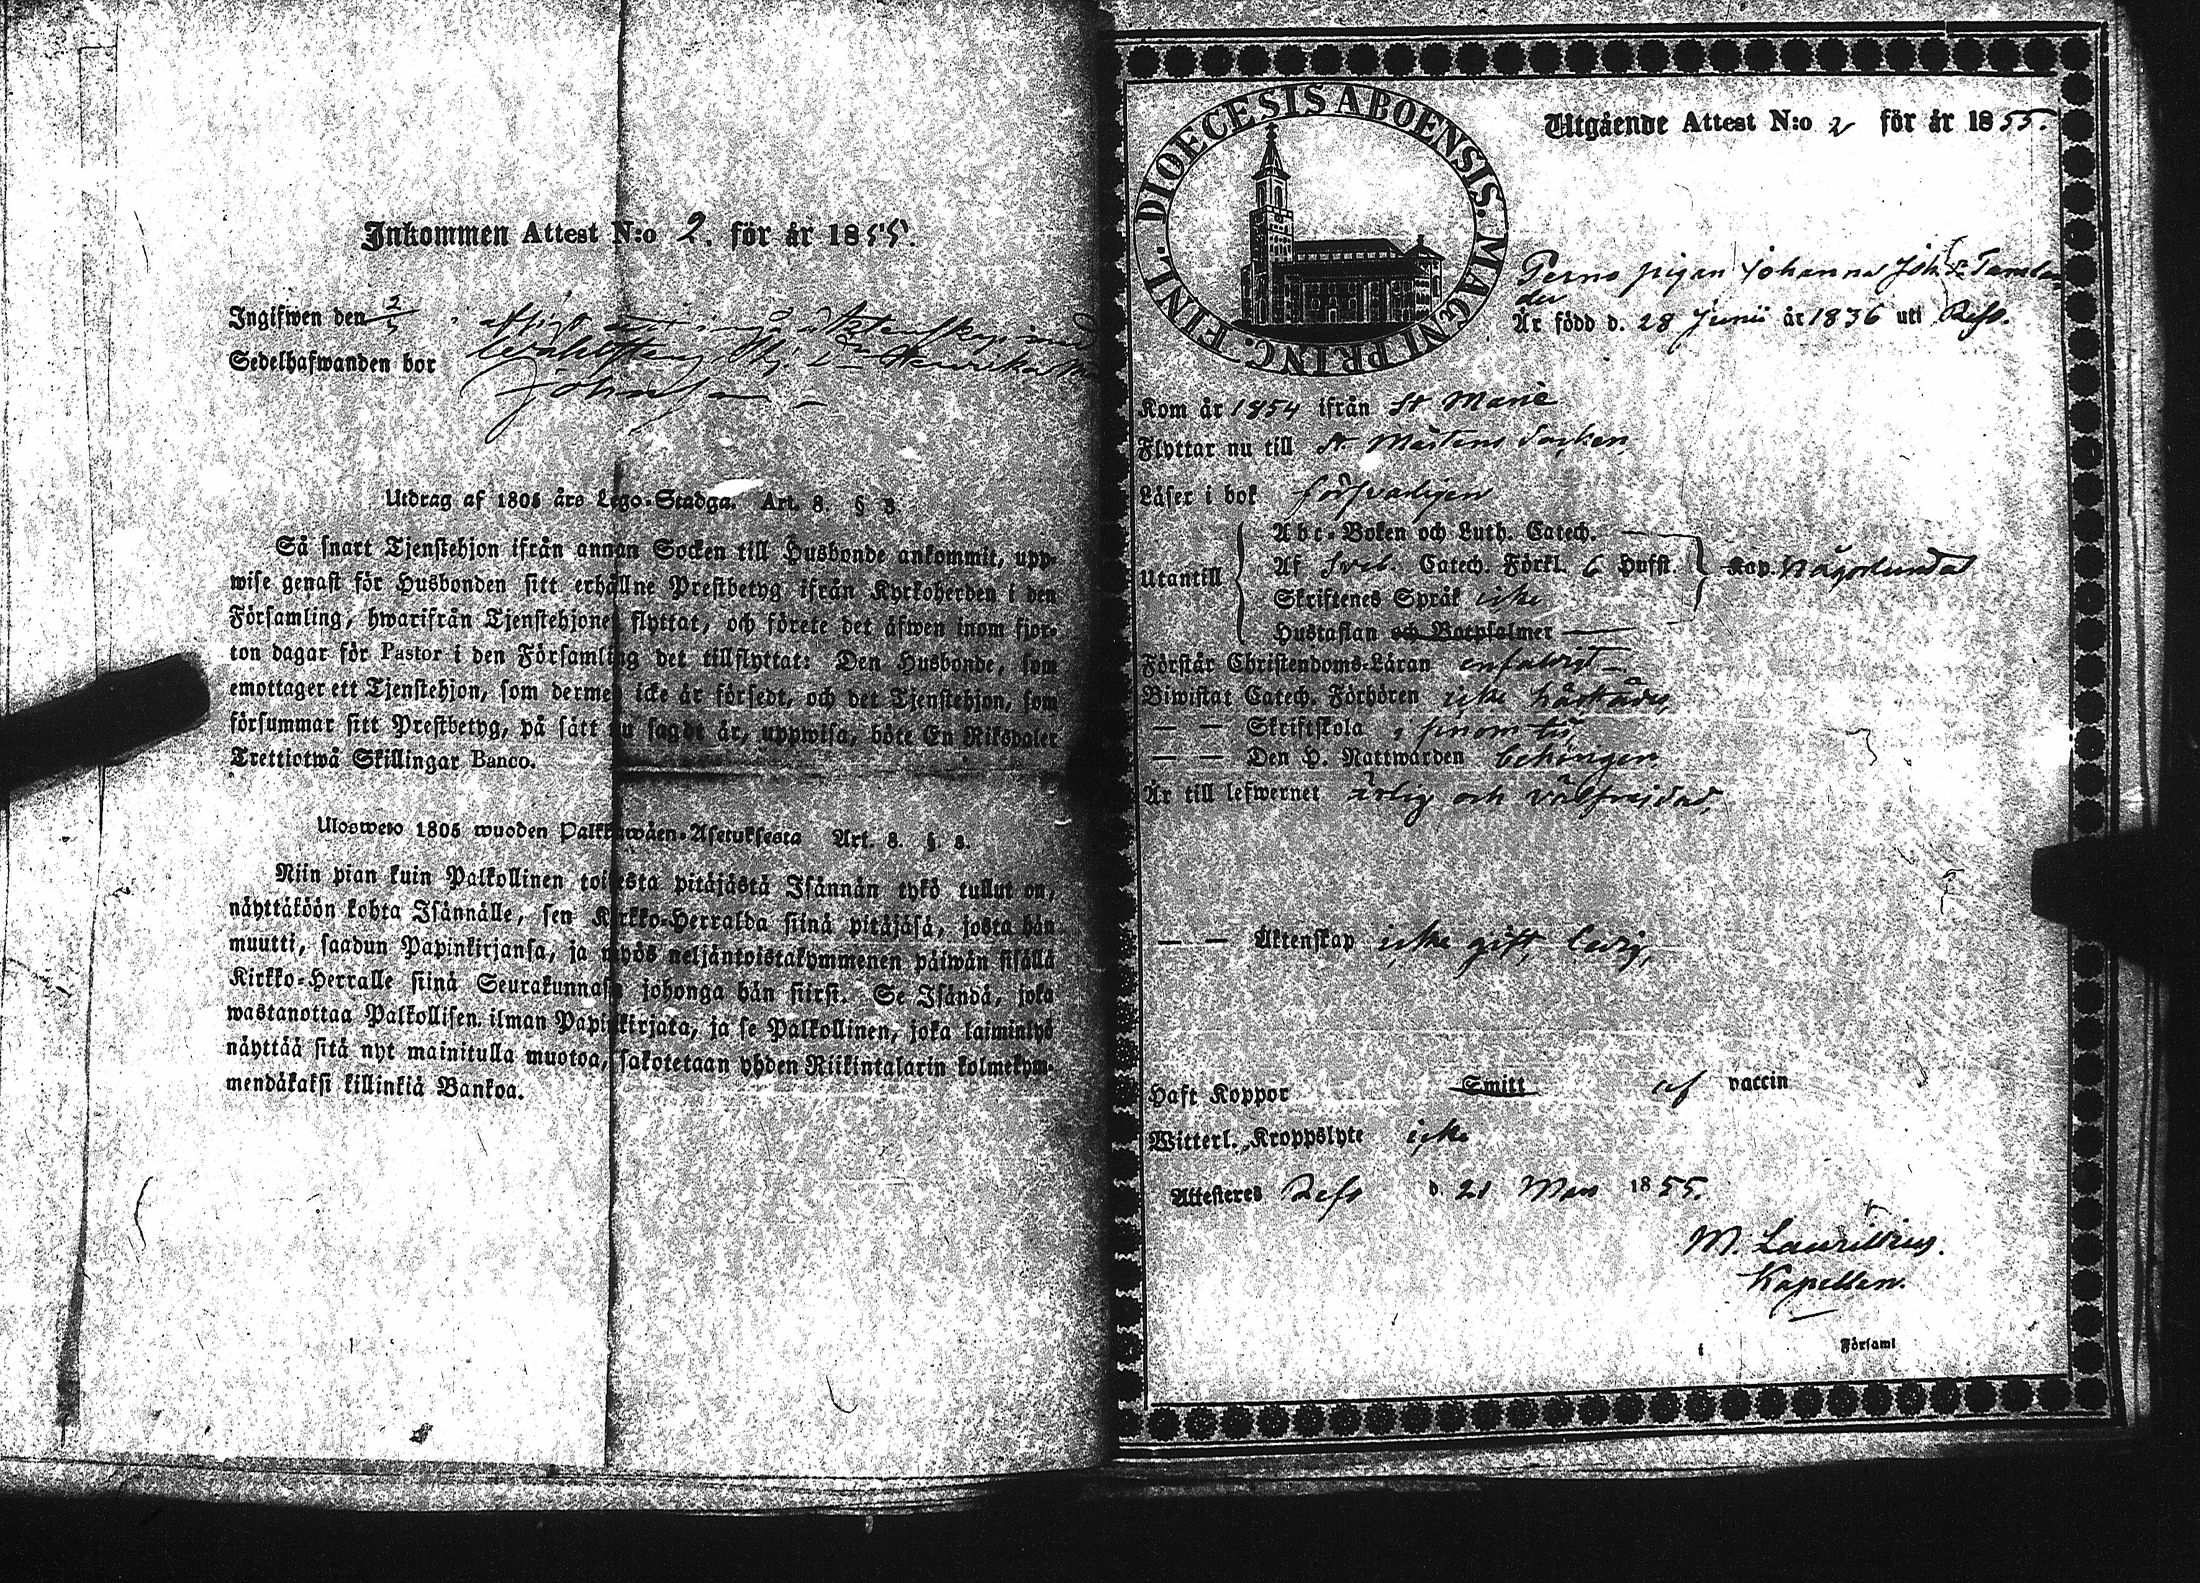 Inkommen Attest N:o 2. för år 1855.
Ingifwen den 2/5
Sedelhafwanden bor
Johans
Utdrag af 1805 års Lego-Stadga. Art. 8. § 3.
Så snart Tjenstehjon ifrån annan Socken till Husbonde ankommit, upp-
wise genast för Husbonden sitt erhållne Prestbetyg ifrån Kyrkoherden i den
Församling, hwarifrån Tjenstehjonet flyttat, och förete det äfwen inom fjor-
ton dagar för Pastor i den Församling det tillflyttat: Den Husbonde, som
emottager ett Tjenstehjon, som dermed icke är försedt, och det Tjenstehjon, som
försummar sitt Prestbetyg, på sätt nu sagdt är, uppwisa, böte En Riksdaler
Trettiotwå Skillingar Banco.
Ulosweto 1805 wuoden Palkkawäen-Asetuksesta Art. 8. § 3.
Niin pian kuin Palkollinen toisesta pitäjästä Isännän tykö tullut on,
näyttäköön kohta Isännälle, sen Kirkko-Herralda siinä pitäjäsä, josta hän
muutti, saadun Papinkirjansa, ja myös neljäntoistakymmenen päiwän sisällä
Kirkko-Herralle siinä Seurakunnasa johonga hän siirsi. Se Isändä, joka
wastanottaa Palkollisen ilman Papinkirjata, ja se Palkollinen, joka laiminlyö
näyttää sitä nyt mainitulla muotoa, sakotetaan yhden Riikintalarin kolmekym-
mendäkaksi killinkiä Bankoa.
FINL. DIOECESIS ABOENSIS. MAGNI PRINC.
Utgående Attest N:o 2 för år 1855.
Perno pigan Johanna Joh:
der
Är född d. 28 Junii år 1836 uti Reso.
Kom år 1854 ifrån St Marie
Flyttar nu till St. Mårtens Socken,
Läser i bok försvarligen
Abc-Boken och Luth. Catech. —
Utantill Af Sveb. Catech. Förkl. 6 Hufst. Kap. någorlunda
Skriftenes Språk icke
Hustaflan och Botpsalmer —
Förstår Christendoms-Läran enfaldigt —
Biwistat Catech. Förhören icke
— — Skriftskola
— — Den H. Nattwarden behörigen
Är till lefwernet ärlig och välfrejdad,
— — Äktenskap icke gift, ledig,
Haft Koppor Smitt af vaccin
Witterl. Kroppslyte icke
Attesteres Reso d. 21 Mars 1855.
M. Laurellius.
Kapellan.
i Församl